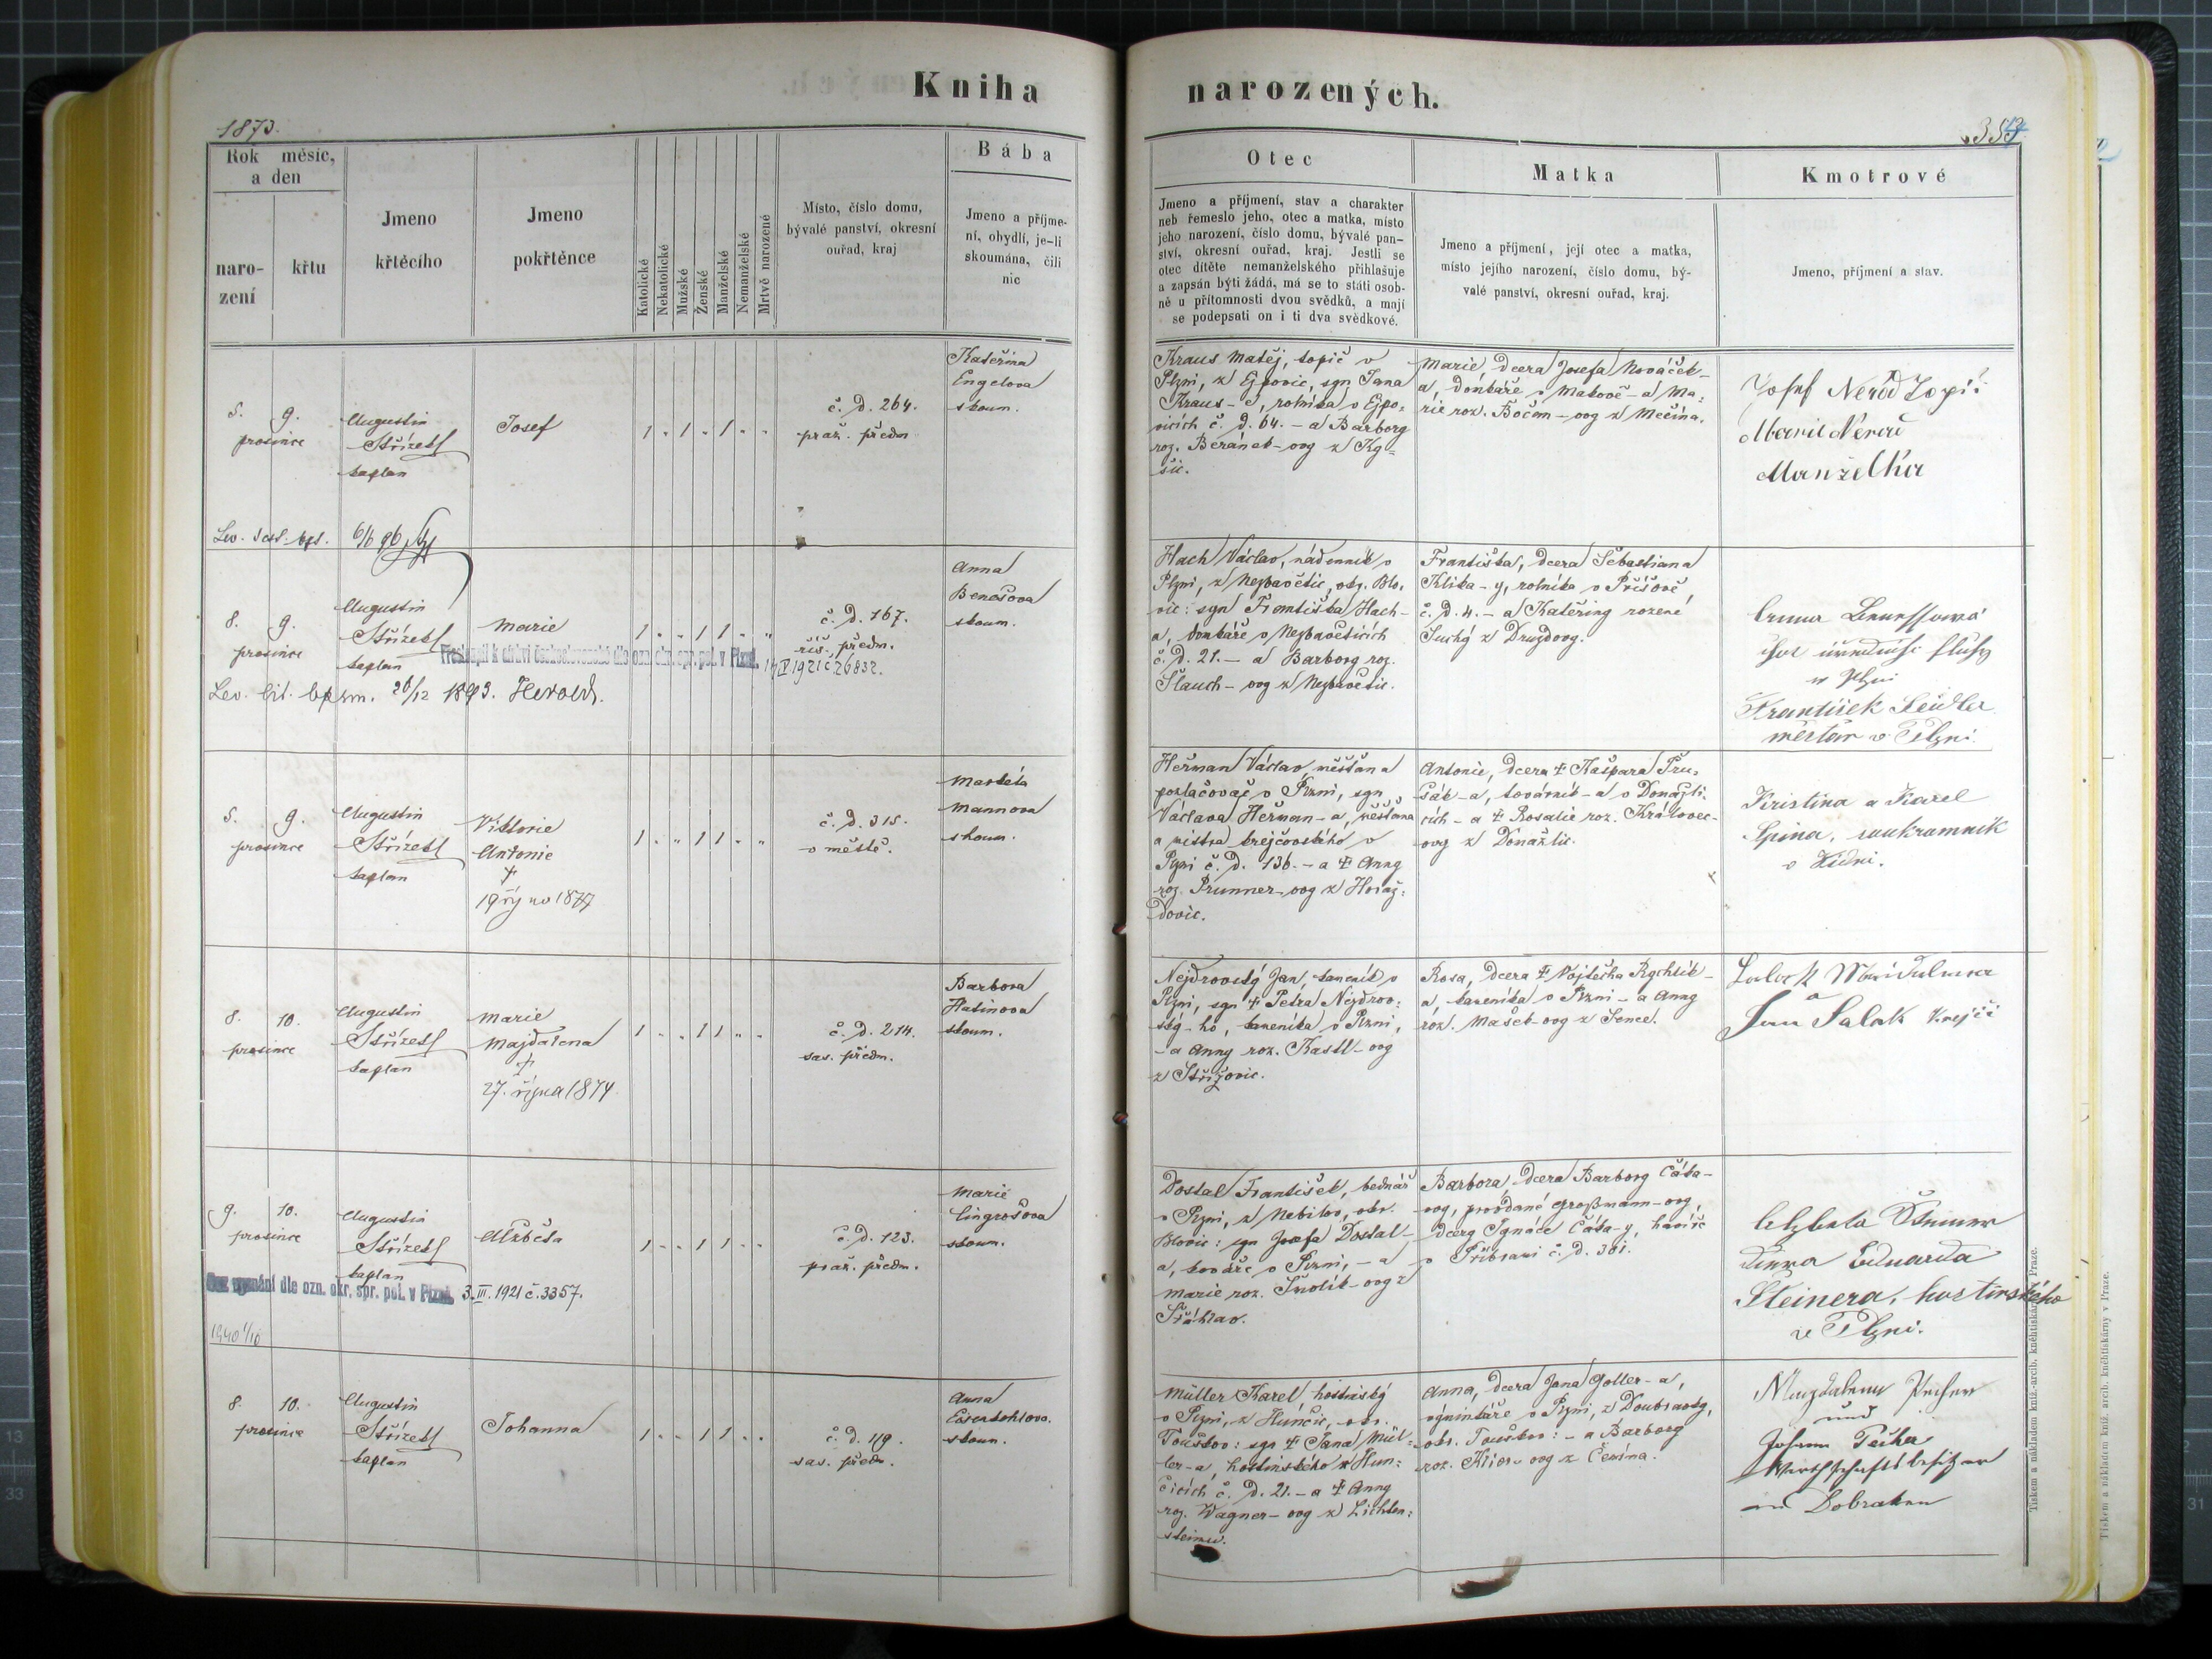 Kniha
narozených.
1873.
Rok měsíc,
a den
naro-
zení
křtu
Jmeno
křtěcího
Jmeno
pokřtěnce
Katolické
Nekatolické
Mužské
Ženské
Manželské
Nemanželské
Mrtvě narozené
Místo, číslo domu,
bývalé panství, okresní
ouřad, kraj
Bába
Jmeno a příjme-
ní, obydlí, je-li
skoumána, čili
nic
Otec
Jmeno a příjmení, stav a charakter
neb řemeslo jeho, otec a matka, místo
jeho narození, číslo domu, bývalé pan-
ství, okresní ouřad, kraj. Jestli se
otec dítěte nemanželského přihlašuje
a zapsán býti žádá, má se to státi osob-
ně u přítomnosti dvou svědků, a mají
se podepsati on i ti dva svědkové.
Matka
Jmeno a příjmení, její otec a matka,
místo jejího narození, číslo domu, bý-
valé panství, okresní ouřad, kraj.
Kmotrové
Jmeno, příjmení a stav.
5. 9.
prosince
Augustin
Střízek
kaplan
Josef
1 " 1 " 1 " "
č. d. 264.
praž. předm.
Kateřina
Engelova
skoum.
Kraus Matěj, topič v
Plzni, z Ejpovic, syn Jana
Kraus-a, rolníka v Ejpo-
vicích č. d. 64. – a Barbory
roz. Beránek-ovy z Ky-
šic.
Marie, dcera Josefa Nováček-
a, domkáře v Makově – a Ma-
rie roz. Bočan-ovy z Mečína.
Josef Nerad Topič
Marie Nerad
Manželka
8. 9.
prosince
Augustin
Střízek
kaplan
Marie
1 " " 1 1 " "
č. d. 167.
říš. předm.
Přestoupil k církvi československé dle ozn. okr. spr. pol. v Plzni. 14/IV 1921 č. 26832.
1893. Herold.
Anna
Benešova
skoum.
Hach Václav, nádenník v
Plzni, z Nezbavětic, okr. Blo-
vic: syn Františka Hach-
a, domkáře v Nezbavěticích
č. d. 21. – a Barbory roz.
Šlauch-ovy z Nezbavětic.
Františka, dcera Šebastiana
Klika-y, rolníka v Příšově,
č. d. 4. – a Kateřiny rozené
Suchý z Druzdovy.
František Seidler
měšťan v Plzni.
5. 9.
prosince
Augustin
Střízek
kaplan
Viktorie
Antonie
†
1877
1 " " 1 1 " "
č. d. 315.
v městě.
Markéta
Mannova
skoum.
Heřman Václav měšťan a
pozlačovač v Plzni, syn
Václava Heřman-a, měšťana
a mistra krejčovského v
Plzni č. d. 136. – a † Anny
roz. Prunner-ovy z Horaž-
dovic.
Antonie, dcera † Kašpara Pru-
továrník-a v Domažli-
cích – a † Rosalie roz. Královec-
ovy z Domažlic.
Kristina a Karel
Spina, soukromník
v Vídni.
8. 10.
prosince
Augustin
Střízek
kaplan
Marie
Majdalena
†
27. října 1874.
1 " " 1 1 " "
č. d. 214.
sas. předm.
Barbora
Hatinova
skoum.
Nejdrovský Jan, kameník v
Plzni, syn † Petra Nejdrov-
ský-ho, kameníka v Plzni,
– a Anny roz. Kastl-ovy
z Střížovic.
Rosa, dcera † Vojtěcha Rychlík-
a, kameníka v Plzni – a Anny
roz. Mašek-ovy z Sence.
a
Jan Šalak Krejčí
9. 10.
prosince
Augustin
Střízek
kaplan
Alžběta
1 " " 1 1 " "
č. d. 123.
praž. předm.
Bez vyznání dle ozn. okr. spr. pol. v Plzni. 3. III. 1921 č. 3357.
1940 1/10
Marie
Lingrošova
skoum.
Dostal František, bednář
v Plzni, z Nebílov, okr.
Blovic: syn Josefa Dostal-
a, kováře v Plzni, – a
Marie roz. Smolík-ovy z
Šťáhlav.
Barbora dcera Barbory Čáka-
ovy, provdané Großmann-ovy,
dcery Ignáce Čáka-y, havíře
v Příbrami č. d. 301.
Eduarda
Steinera, hostinského
v Plzni.
8. 10.
prosince
Augustin
Střízek
kaplan
Johanna
1 " " 1 1 " "
č. d. 119.
sas. předm.
Anna
skoum.
Müller Karel, hostinský
v Plzni, z Hunčic, okr.
Touškov: syn † Jana Mül-
ler-a, hostinského v Hun-
čicích č. d. 21. – a † Anny
roz. Wagner-ovy z Lichten-
steinu.
Anna, dcera Jana Goller-a,
v Plzni, z Doubravky,
okr. Touškov: – a Barbory
z Čemína.
und
Johann Pecher
Wirthschaftsbesitzer
Dobraken
Tiskem a nákladem kníž.-arcib. kněhtiskárny v Praze.
Tiskem a nákladem kníž. arcib. kněhtiskárny v Praze.